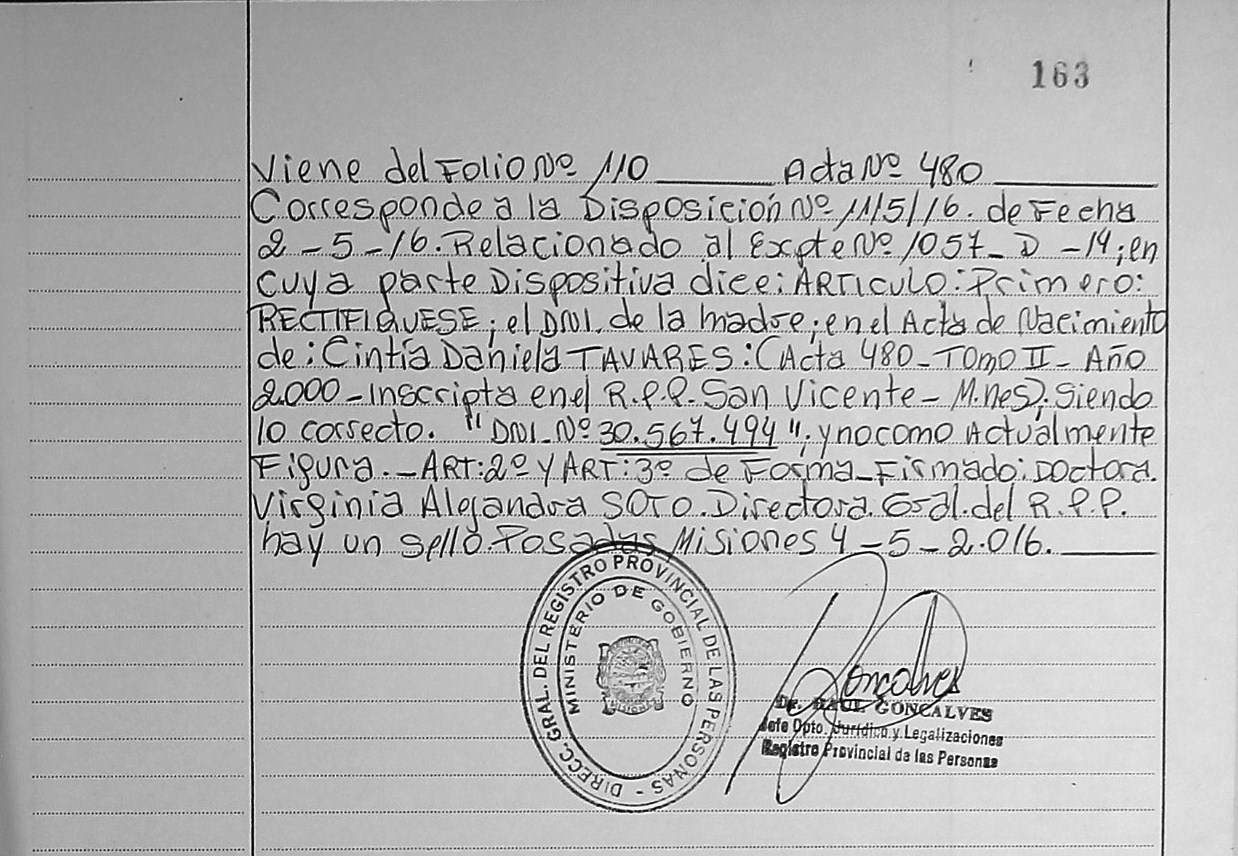 163
Viene del Folio Nº 110 ______ Acta Nº 480 ______
Corresponde a la Disposición Nº 115/16. de Fecha
2-5-16. Relacionado al Expte Nº 1057_D-14; en
cuya parte Dispositiva dice: ARTICULO: Primero:
RECTIFIQUESE; el DNI. de la madre; en el Acta de Nacimiento
de: Cintia Daniela TAVARES: (Acta 480_Tomo II_Año
2000_Inscripta en el R.P.P. San Vicente_M.nes); Siendo
lo correcto. "DNI_Nº 30.567.494"; y no como Actualmente
Figura._ART:2º y ART:3º de Forma_Firmado: Doctora.
Virginia Alejandra SOTO. Directora. Gral. del R.P.P.
hay un sello. Posadas Misiones 4-5-2.016. ______
DIRECC. GRAL. DEL REGISTRO PROVINCIAL DE LAS PERSONAS -
MINISTERIO DE GOBIERNO
MISIONES
Goncalves
Dr. RAUL GONCALVES
Jefe Dpto. Jurídico y Legalizaciones
Registro Provincial de las Personas